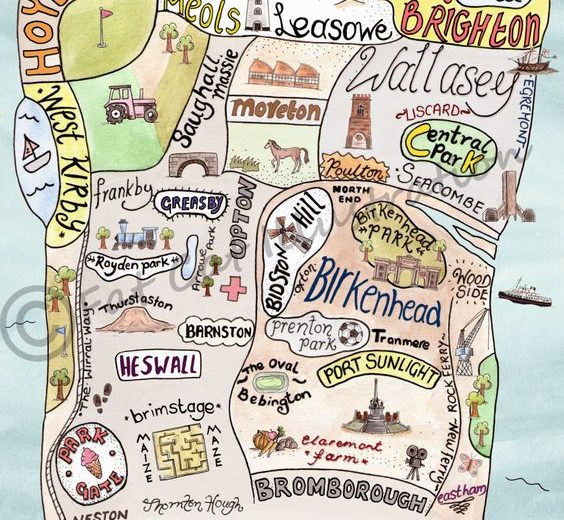 HOY
MEOLS
LEASOWE
BRIGHTON
Wallasey
EGREMONT
Saughall
Massie
MORETON
~LISCARD~
Central
Park
West Kirby
Poulton
SEACOMBE
frankby
GREASBY
UPTON
NORTH
END
BIDSTON
Hill
Birkenhead
PARK
Royden park
Arrowe Park
oxton
Birkenhead
WOOD
SIDE
Thurstaston
BARNSTON
prenton
park
Tranmere
ROCK FERRY
The Wirral Way
HESWALL
The Oval
Bebington
PORT SUNLIGHT
brimstage
MAIZE
MAZE
claremont
farm
New ferry
PARK
GATE
Thornton Hough
BROMBOROUGH
eastham
NESTON